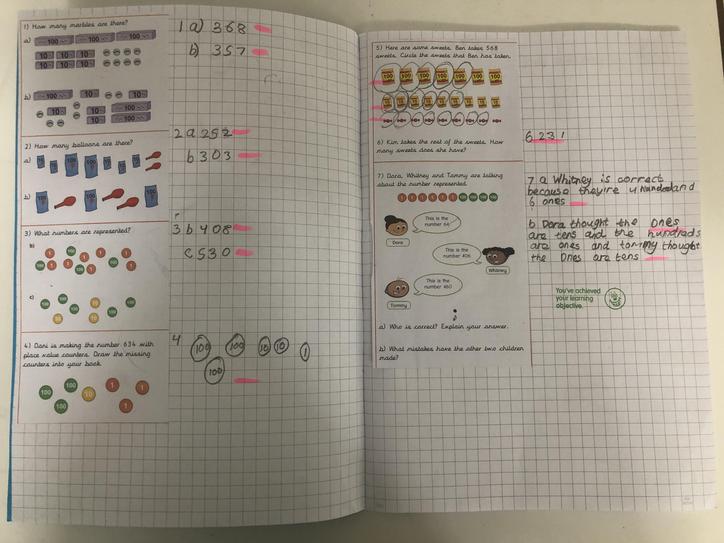 1) How many marbles are there?
a)
100 100 100
10 10 10
10 10 10
b)
100 10 10
10 100
10 100
2) How many balloons are there?
a)
b)
3) What numbers are represented?
b)
c)
4) Dani is making the number 634 with
place value counters. Draw the missing
counters into your book.
100 100 10 1 1
100 1
1 a) 368
b) 357
2 a 252
b 303
3 b 408
c 530
4 100 100 10 10 1
100
5) Here are some sweets. Ben takes 568
sweets. Circle the sweets that Ben has taken.
6) Kim takes the rest of the sweets. How
many sweets does she have?
7) Dora, Whitney and Tommy are talking
about the number represented.
1 1 1 1 1 1 100 100 100 100
This is the
number 64
Dora
This is the
number 406
Whitney
This is the
number 460
Tommy
a) Who is correct? Explain your answer.
b) What mistakes have the other two children
made?
6 231
7 a Whitney is correct
because theyire 4 Hundred and
6 ones
b Dora thought the Ones
are tens and the hundrads
are ones and tommy thought
the Ones are tens
You've achieved
your learning
objective.